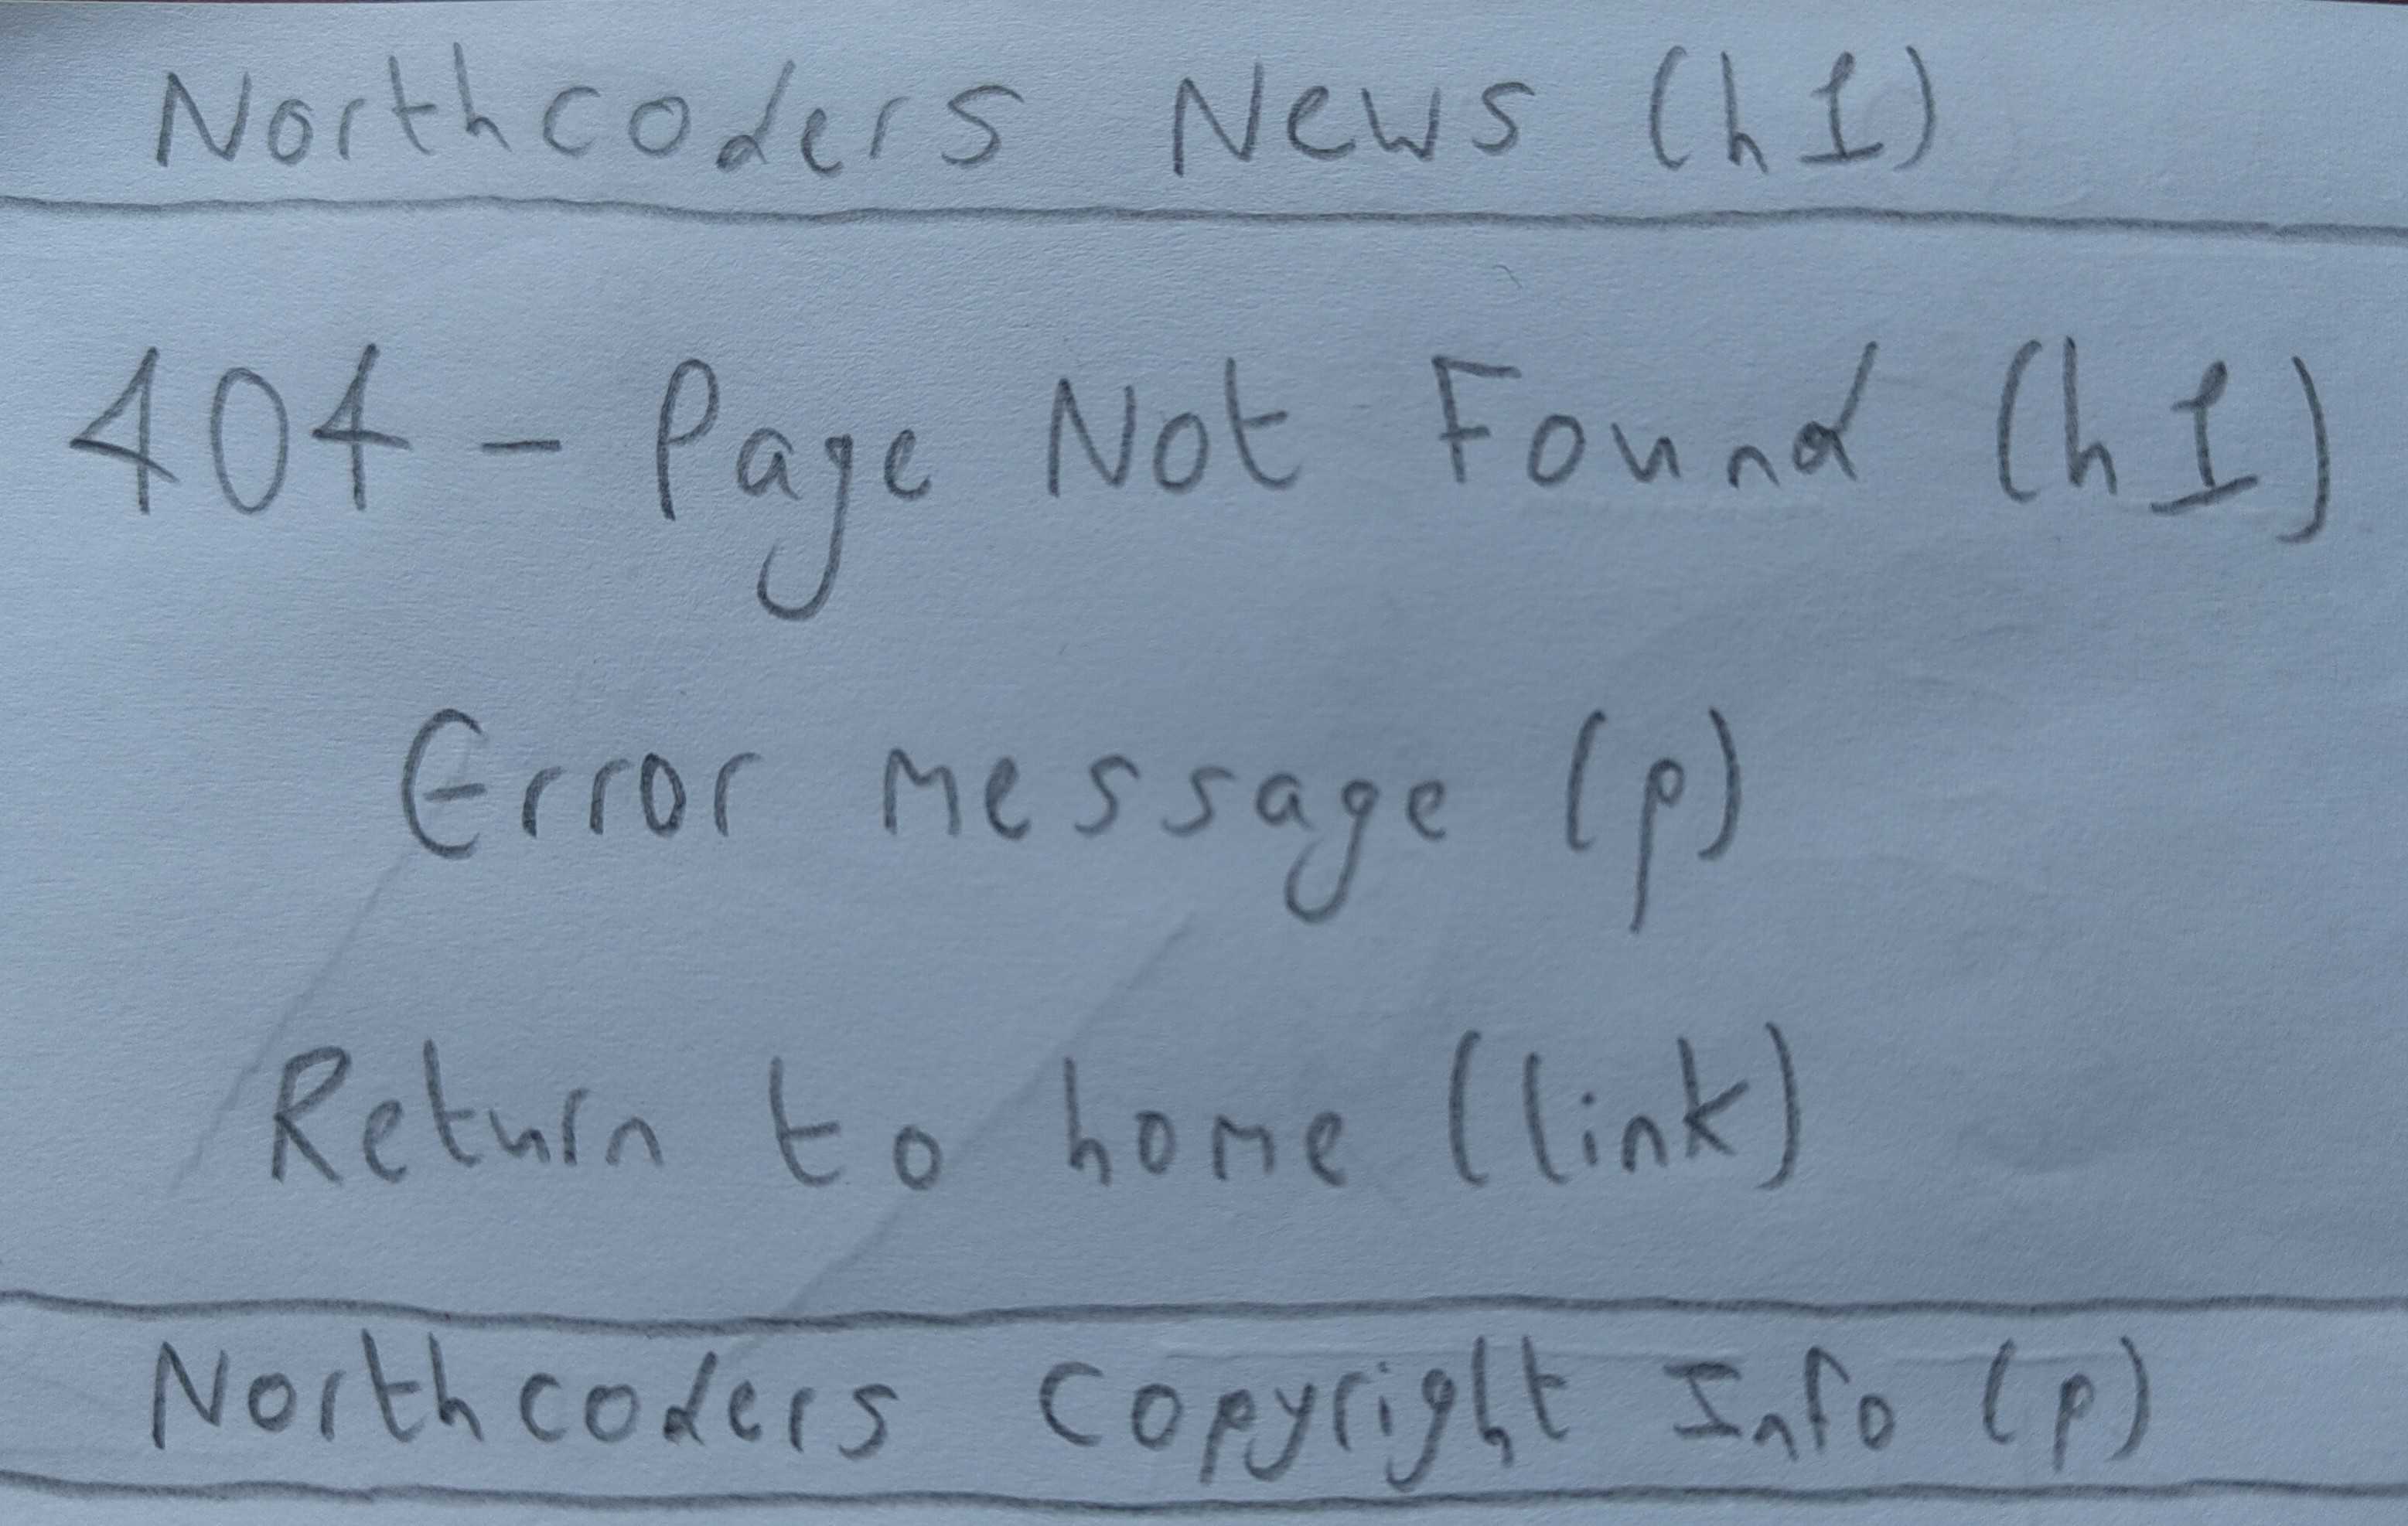 Northcoders News (h1)
404 - Page Not Found (h1)
Error message (p)
Return to home (link)
Northcoders Copyright Info (p)